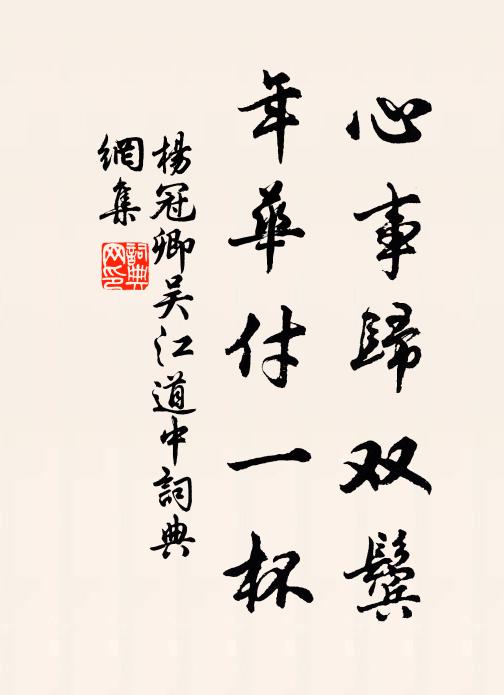 心事歸双鬓
年華付一杯
楊冠卿吴江道中詞典
網集
詞典
网印